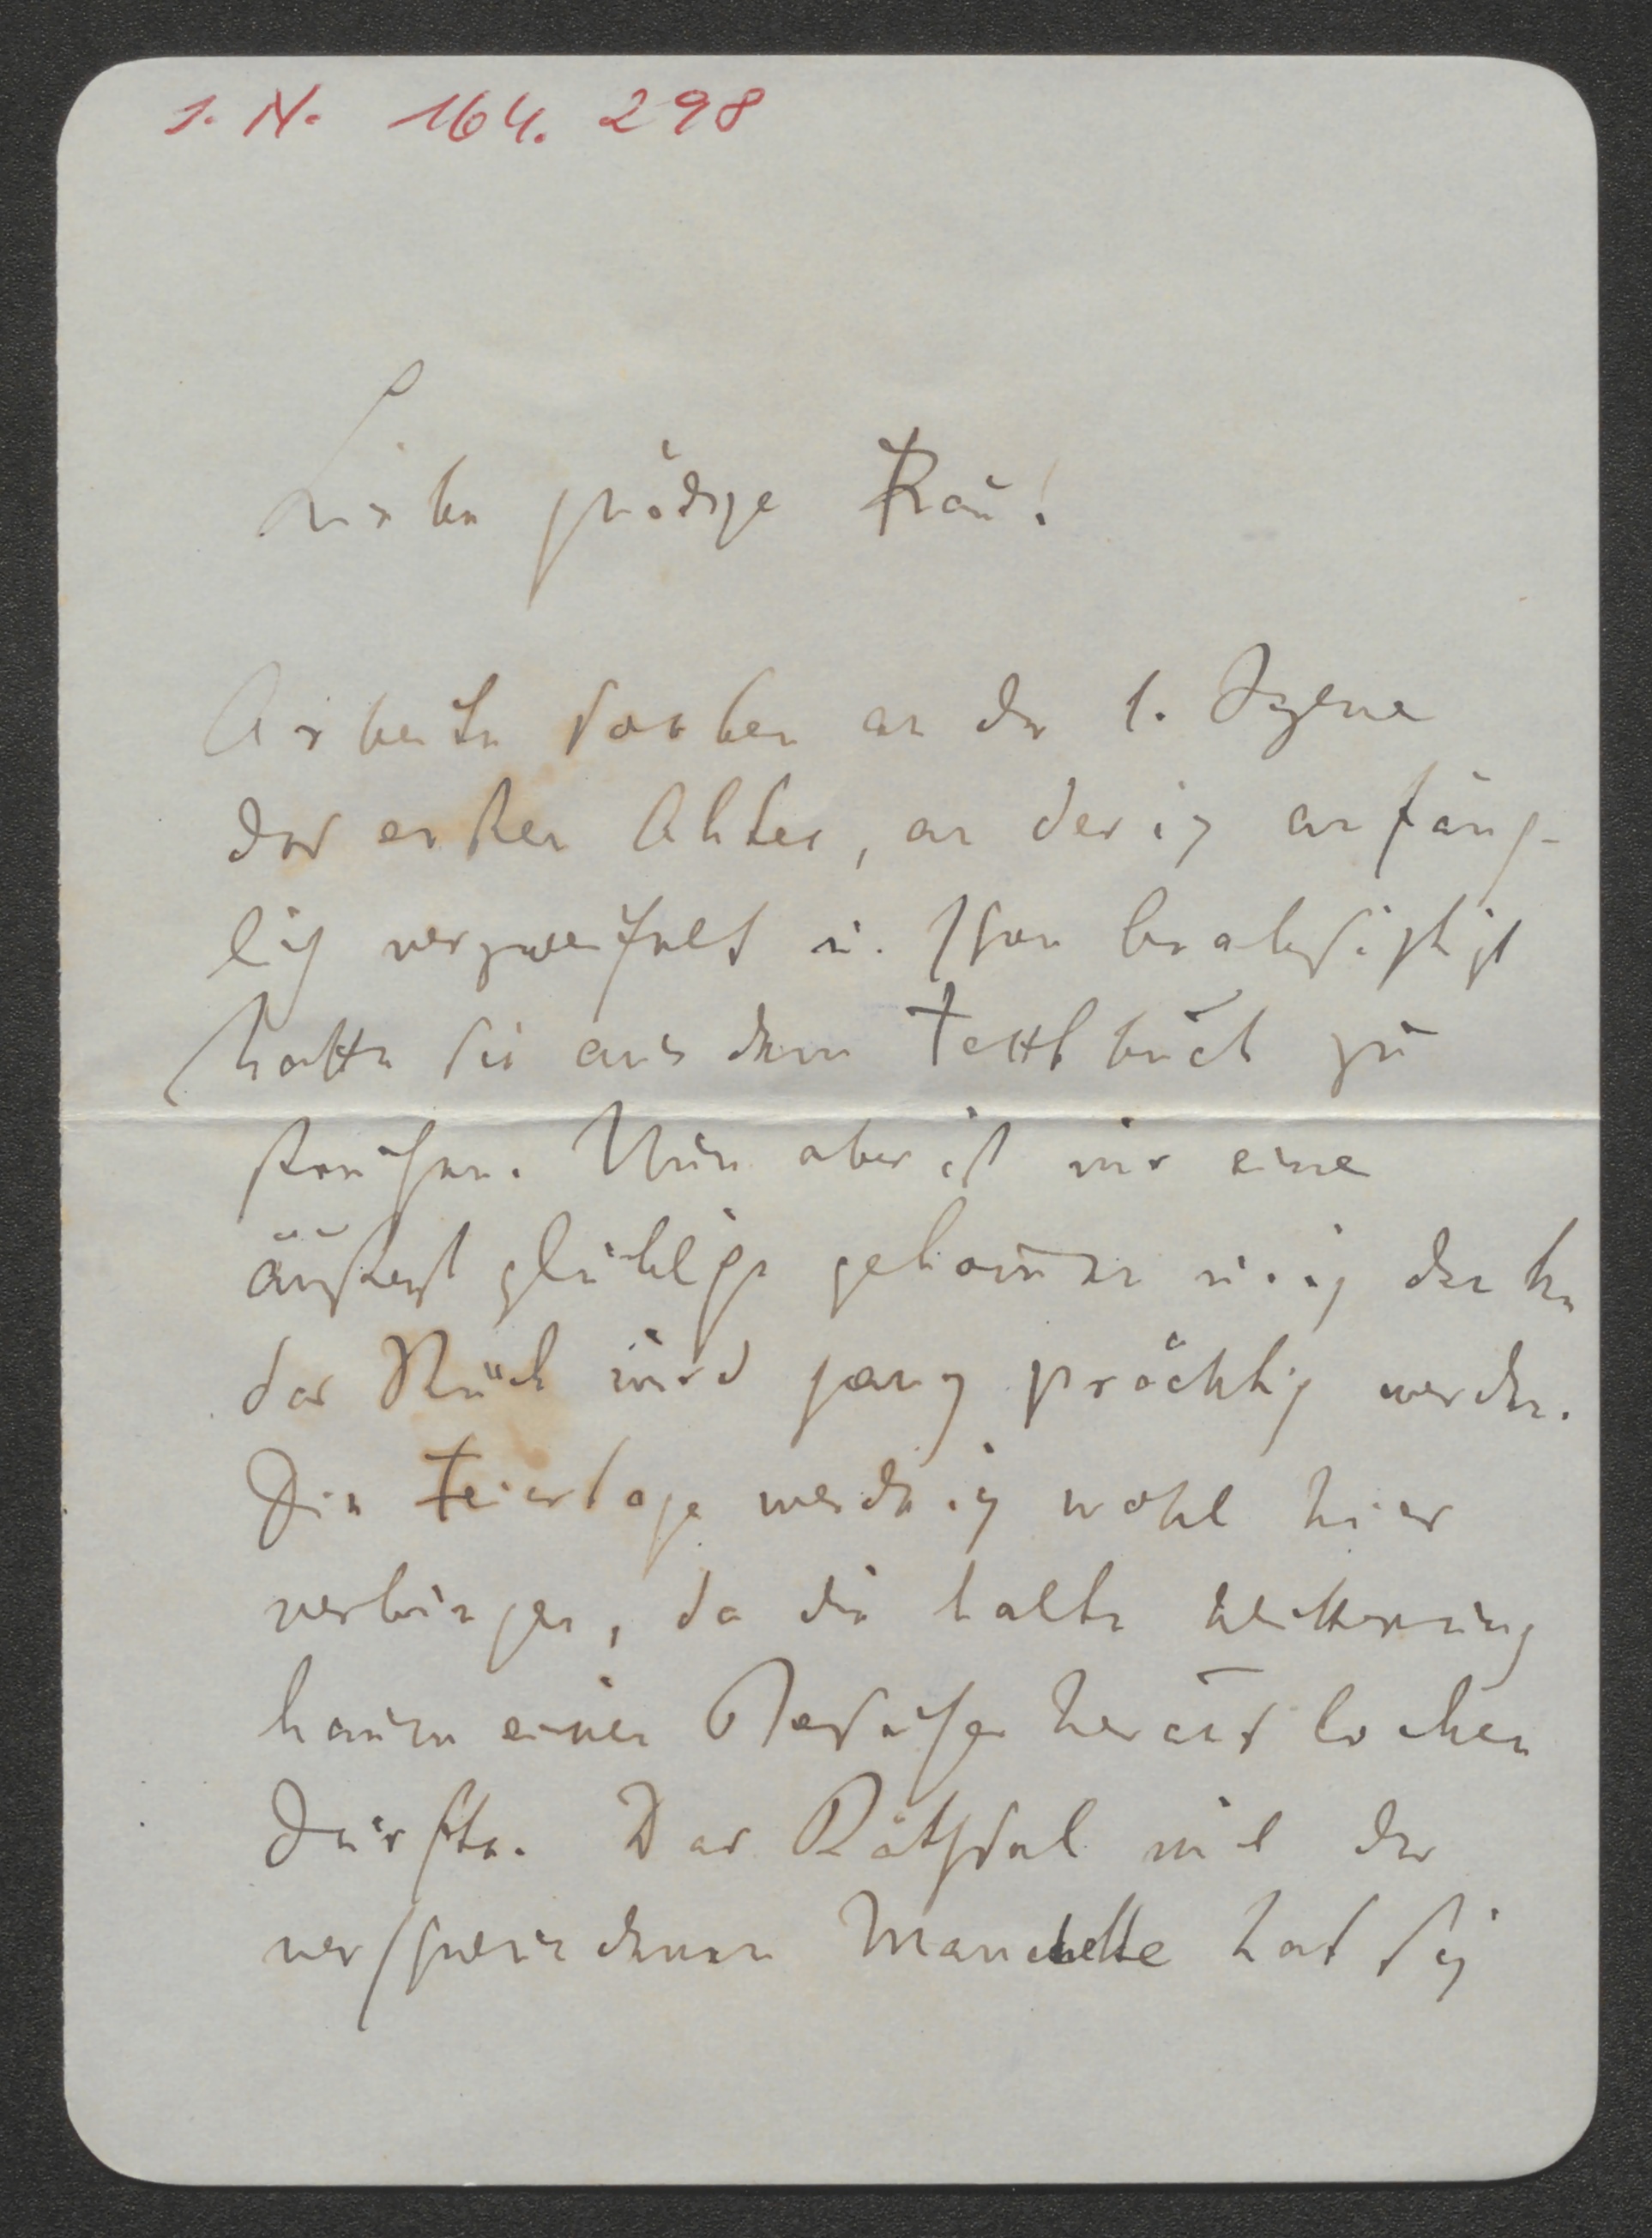 I. N. 164.298
Liebe gnädige Frau!
Arbeite soeben an der 1. Szene
des ersten Aktes, an der ich anfäng-
lich verzweifelt u. schon beabsichtigt
hatte sie aus dem Textbuch zu
streichen. Nun aber ist mir eine
äußerst glückliche gekommen u. ich denke
das Stück wird ganz prächtig werden.
Die Feiertage werde ich wohl hier
verbringen, da die kalte Witterung
kaum einen Besucher herauslocken
dürfte. Das Räthsel mit der
verschwundenen Manchette hat sich